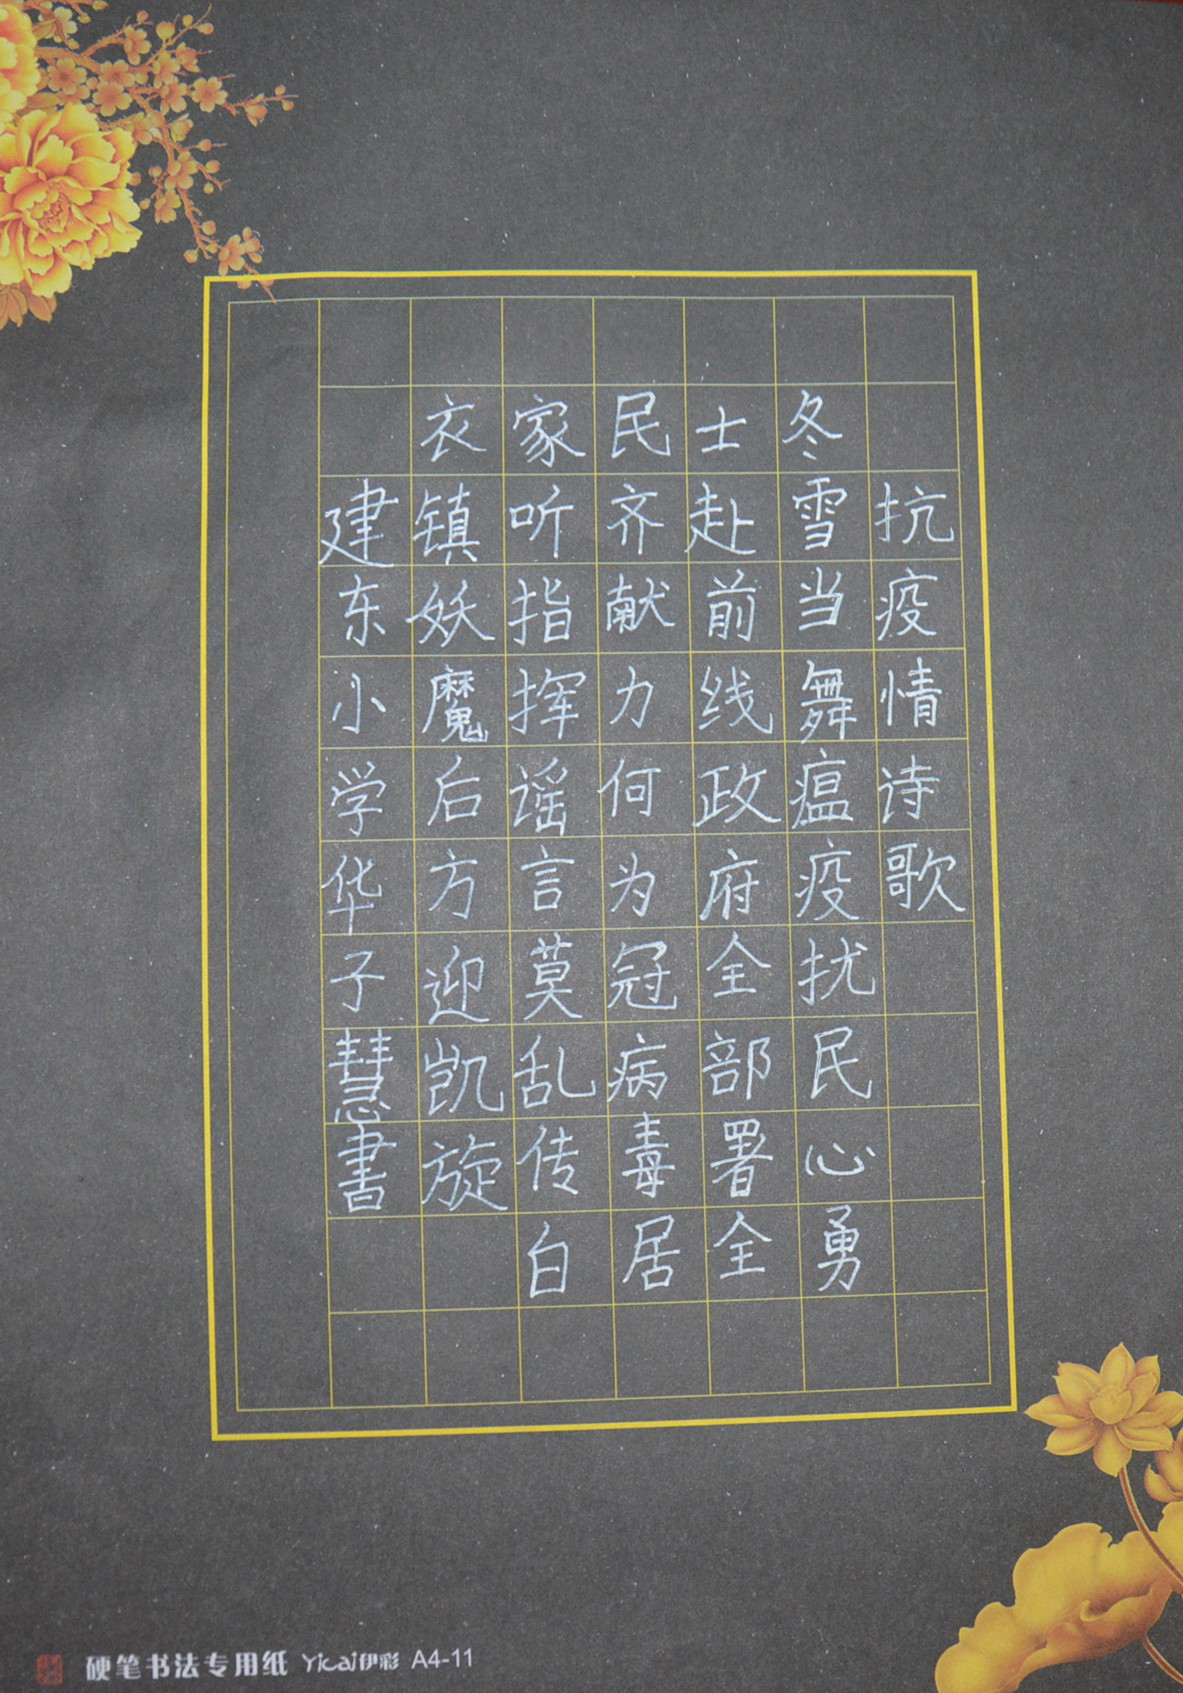 抗疫情诗歌
冬雪当舞瘟疫扰民心勇
士赴前线政府全部署全
民齐献力何为冠病毒居
家听指挥谣言莫乱传白
衣镇妖魔后方迎凯旋
建东小学华子慧書
硬笔书法专用纸 Yicai伊彩 A4-11